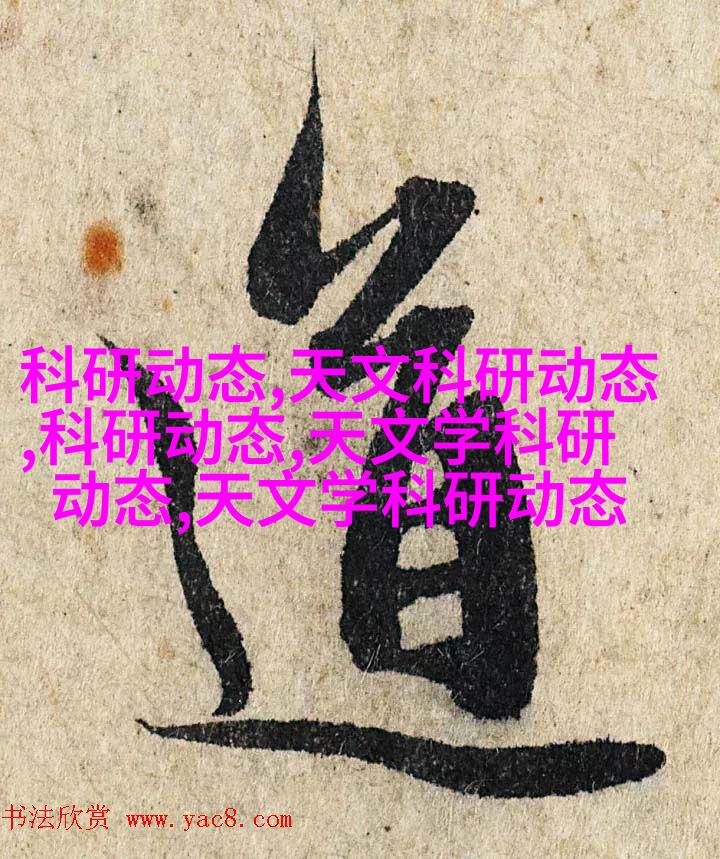 道
科研动态,天文科研动态
,科研动态,天文学科研
动态,天文学科研动态
书法欣赏 www.yac8.com